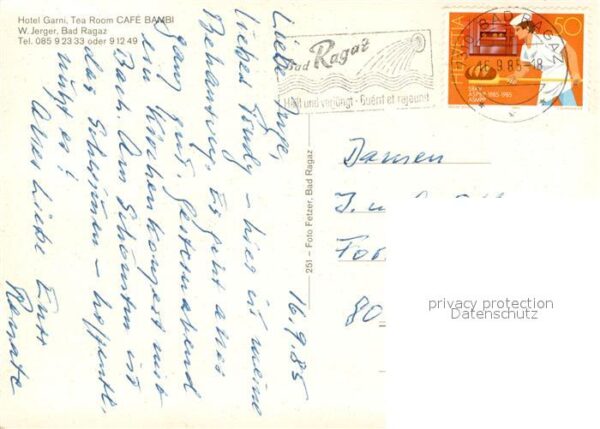 Hotel Garni, Tea Room CAFÉ BAMBI
W. Jerger, Bad Ragaz
Tel. 085 9 23 33 oder 9 12 49
Bad Ragaz
Heilt und verjüngt - Guérit et rajeunit
BAD RAGAZ
16.9.85-18
HELVETIA
50
1885-1985
251 – Foto Fetzer, Bad Ragaz
16.9.85
Liebe Inge,
liebes Trudy – hier ist meine
Behausung. Es geht alles
ganz gut. Gesternabend
ein Kirchenkonzert mit
Bach. Am Schönsten ist
das Schwimmen – hoffentl.
nützt es!
Alles Liebe Euch
Renate
Damen
J. u.
80
privacy protection
Datenschutz